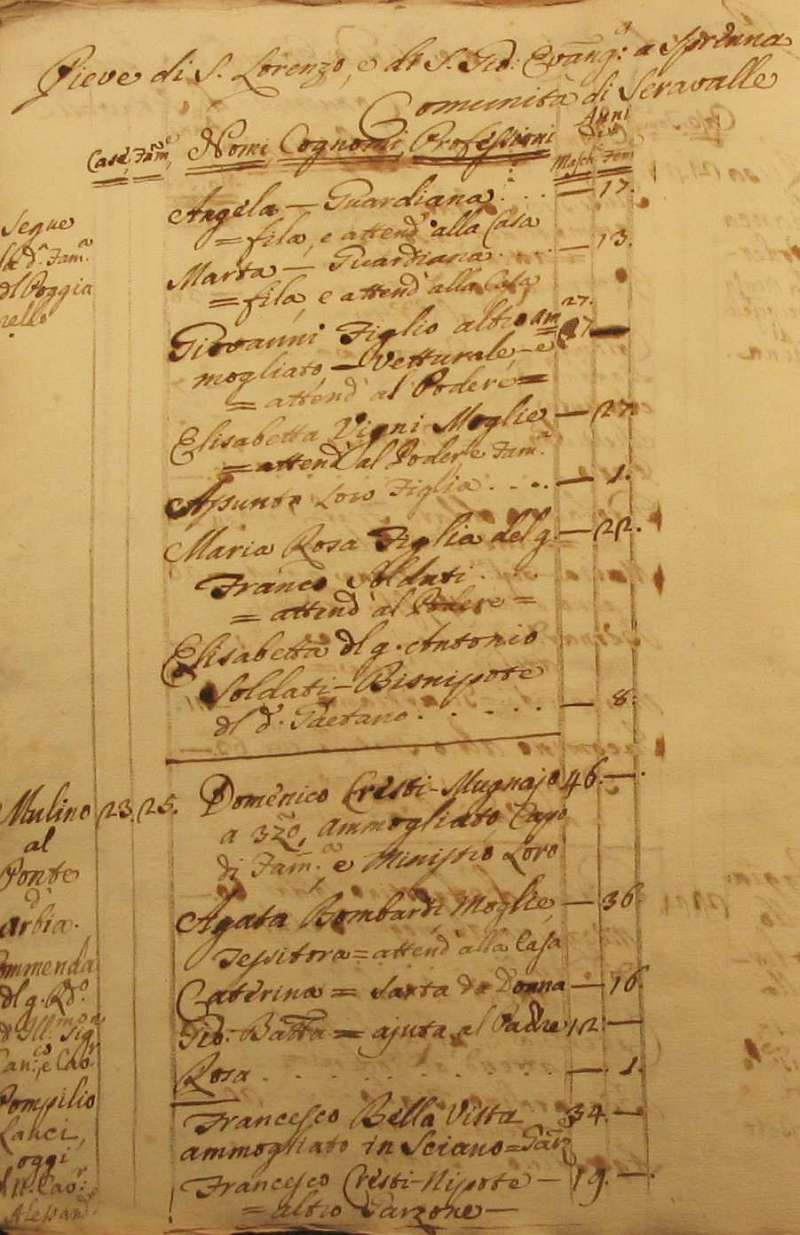 Pieve di S. Lorenzo, e di S. Gio: Evang: a
Comunità di Seravalle
Case, Fam, Nomi, Cognomi, Professioni
Anni
Masch: Fem
Segue
la d.ª Fam.ª
dl Poggia
Angela — Guardiana . . . — 17.
= fila, e attend alla Casa
Marta — Guardiana . . . — 13.
= fila, e attend alla Casa
27.
Giovanni Figlio altro am 27 —
mogliato — Vetturale, e
= attend al Podere =
Elisabetta Vigni Moglie — 27.
= attend al Podere Fam.ª
Assunta Loro Figlia . . . . — 1.
Maria Rosa Figlia del g. — 22.
Franco Soldati . . .
= attend al Podere =
Elisabetta dl g. Antonio
Soldati — Bisnipote
dl d. Gaetano . . . . . . — 8.
Mulino 23. 25. Domenico Cresti - Mugnajo 46. —
al
a 3zo, Ammogliato Capo
Ponte
di Fam.ª e Ministro Loro
d'
Arbia.
Agata Bombardi Moglie, — 36
Tessitora = attend alla Casa
Commenda
Caterina = Sarta da Donna — 16
dl g. R.do
Gio: Batta = ajuta al Padre 12. —
Ill.mo Sig.r
Can:co e Cav.
Rosa . . . . . . . . . . — 1.
Pompilio
Francesco Bella Vista 34. —
Lanci,
ammogliato in Sciano = Garz
oggi
Francesco Cresti - Nipote — 19. —
Cav.r
= altro Garzone —
Alessand